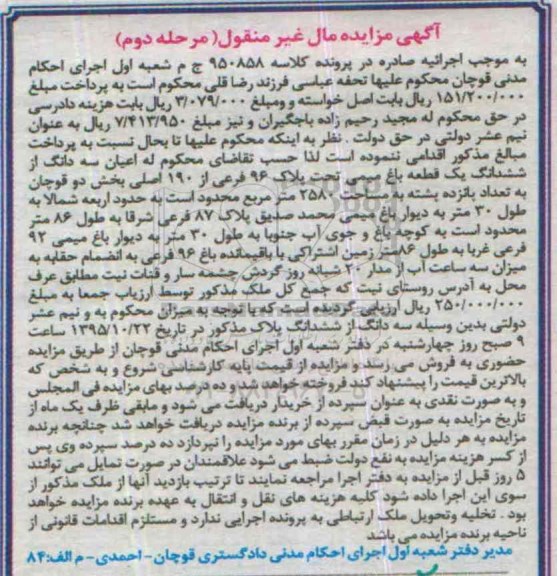 آگهی مزایده مال غیر منقول( مرحله دوم)
به موجب اجرائیه صادره در پرونده کلاسه ۹۵۰۸۵۸ ج م شعبه اول اجرای احکام
مدنی قوچان محکوم علیها تحفه عباسی فرزند رضا قلی محکوم است به پرداخت مبلغ
۱۵۱/۲۰۰/۰۰۰ ریال بابت اصل خواسته و مبلغ ۳/۰۷۹/۰۰۰ ریال بابت هزینه دادرسی
در حق محکوم له مجید رحیم زاده باجگیران و نیز مبلغ ۷/۴۱۳/۹۵۰ ریال به عنوان
نیم عشر دولتی در حق دولت . نظر به اینکه محکوم علیها تا بحال نسبت به پرداخت
مبالغ مذکور اقدامی ننموده است لذا حسب تقاضای محکوم له اعیان سه دانگ از
ششدانگ یک قطعه باغ میمی تحت پلاک ۹۶ فرعی از ۱۹۰ اصلی بخش دو قوچان
به تعداد پانزده پشته به ۲۵۸۰ متر مربع محدود است به حدود اربعه شمالا به
طول ۳۰ متر به دیوار باغ میمی محمد صدیق پلاک ۸۷ فرعی شرقا به طول ۸۶ متر
محدود است به کوچه باغ و جوی آب جنوبا به طول ۳۰ متر به دیوار باغ میمی ۹۲
فرعی غربا به طول ۸۶ متر زمین اشتراکی با باقیمانده باغ ۹۶ فرعی به انضمام حقابه به
میزان سه ساعت آب از مدار ۲۰ شبانه روز گردش چشمه سار و قنات نبت مطابق عرف
محل به آدرس روستای نبت که جمع کل ملک مذکور توسط ارزیاب جمعا به مبلغ
۲۵۰/۰۰۰/۰۰۰ ریال ارزیابی گردیده است که با توجه به میزان محکوم به و نیم عشر
دولتی بدین وسیله سه دانگ از ششدانگ پلاک مذکور در تاریخ ۱۳۹۵/۱۰/۲۲ ساعت
۹ صبح روز چهارشنبه در دفتر شعبه اول اجرای احکام مدنی قوچان از طریق مزایده
حضوری به فروش می رسد و مزایده از قیمت پایه کارشناسی شروع و به شخص که
بالاترین قیمت را پیشنهاد کند فروخته خواهد شد و ده درصد بهای مزایده فی المجلس
و به صورت نقدی به عنوان سپرده از خریدار دریافت می شود و مابقی ظرف یک ماه از
تاریخ مزایده به صورت قبض سپرده از برنده مزایده دریافت خواهد شد چنانچه برنده
مزایده به هر دلیل در زمان مقرر بهای مورد مزایده را نپردازد ده درصد سپرده وی پس
از کسر هزینه مزایده به نفع دولت ضبط می شود علاقمندان در صورت تمایل می توانند
۵ روز قبل از مزایده به دفتر اجرا مراجعه نمایند تا ترتیب بازدید آنها از ملک مذکور از
سوی این اجرا داده شود کلیه هزینه های نقل و انتقال به عهده برنده مزایده خواهد
بود . تخلیه وتحویل ملک ارتباطی به پرونده اجرایی ندارد و مستلزم اقدامات قانونی از
ناحیه برنده مزایده می باشد
مدیر دفتر شعبه اول اجرای احکام مدنی دادگستری قوچان- احمدی - م الف:۸۴